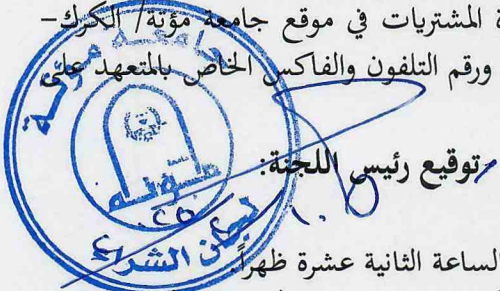 ة المشتريات في موقع جامعة مؤتة/ الكرك–
ورقم التلفون والفاكس الخاص بالمتعهد على
توقيع رئيس اللجنة:
الساعة الثانية عشرة ظهراً.
جامعة مؤتة
مؤتة
لجان الشراء